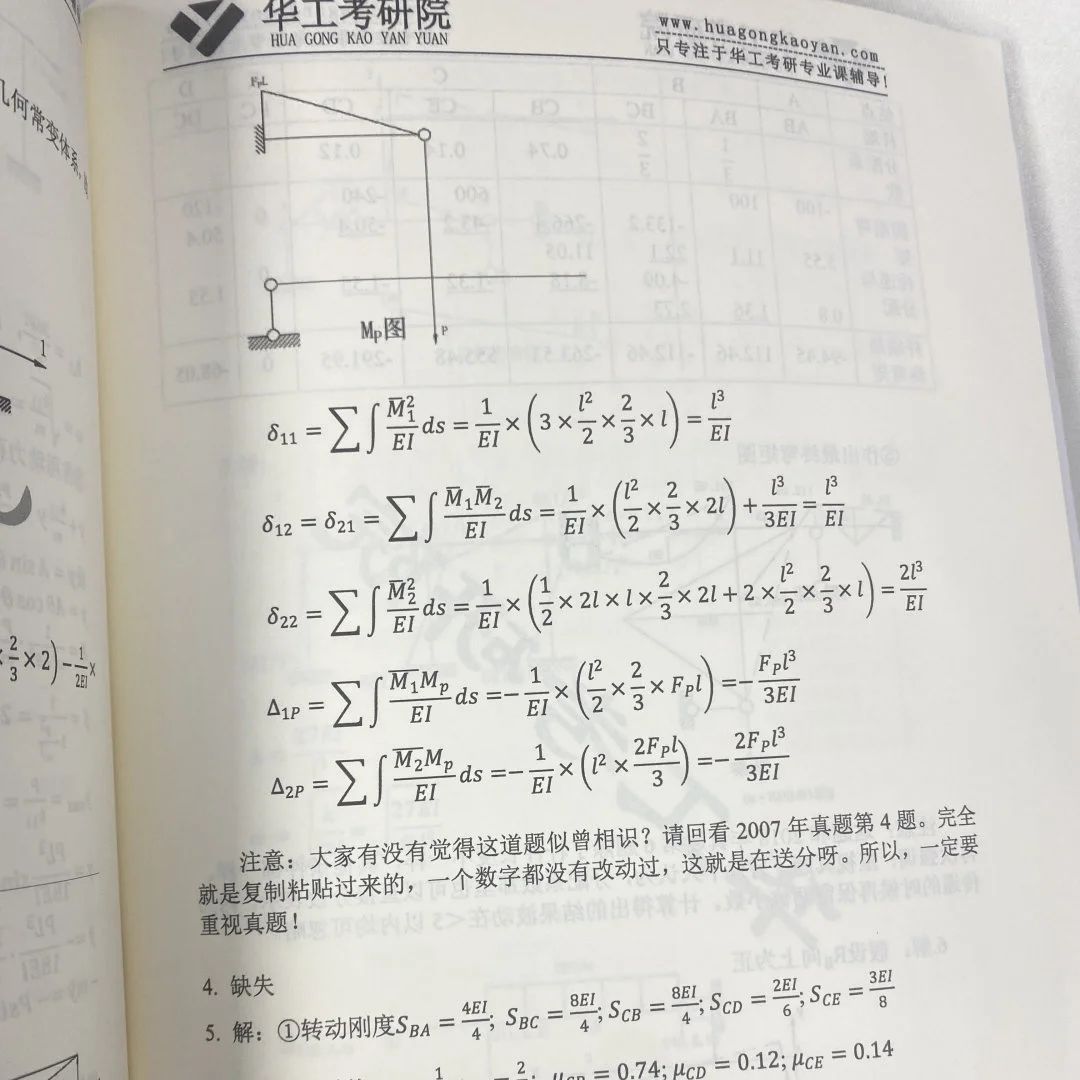 华工考研院
HUA GONG KAO YAN YUAN
www.huagongkaoyan.com
只专注于华工考研专业课辅导!
几何常变体系,
F_P L
P
M_P图
1
δ₁₁ = ∑∫ M̅₁²/EI ds = 1/EI × (3 × l²/2 × 2/3 × l) = l³/EI
δ₁₂ = δ₂₁ = ∑∫ M̅₁M̅₂/EI ds = 1/EI × (l²/2 × 2/3 × 2l) + l³/3EI = l³/EI
δ₂₂ = ∑∫ M̅₂²/EI ds = 1/EI × (1/2 × 2l × l × 2/3 × 2l + 2 × l²/2 × 2/3 × l) = 2l³/EI
× 2/3 × 2) − 1/2EI ×
Δ₁P = ∑∫ M̅₁M_p/EI ds = − 1/EI × (l²/2 × 2/3 × F_P l) = − F_P l³/3EI
Δ₂P = ∑∫ M̅₂M_p/EI ds = − 1/EI × (l² × 2F_P l/3) = − 2F_P l³/3EI
注意:大家有没有觉得这道题似曾相识?请回看 2007 年真题第 4 题。完全
就是复制粘贴过来的,一个数字都没有改动过,这就是在送分呀。所以,一定要
重视真题!
4. 缺失
5. 解:①转动刚度S_BA = 4EI/4; S_BC = 8EI/4; S_CB = 8EI/4; S_CD = 2EI/6; S_CE = 3EI/8
= 0.74; μ_CD = 0.12; μ_CE = 0.14